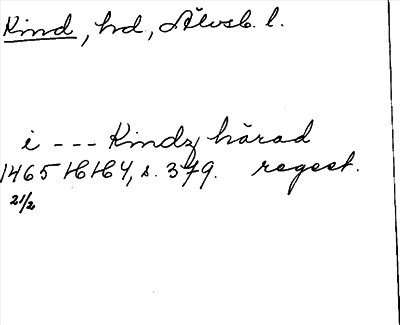 Kind, hd, Älvsb. l.
i --- Kindz härad
1465 HH 4, s. 379. regest.
21/2